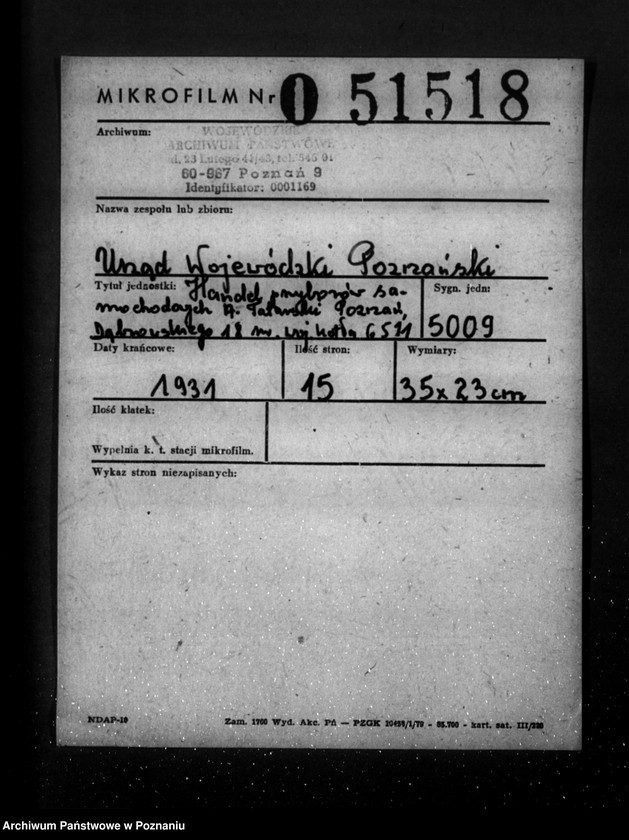 MIKROFILM Nr 0 51518
Archiwum:
WOJEWÓDZKIE
ARCHIWUM PAŃSTWOWE
ul. 23 Lutego 41/43, tel. 545 01
60-967 Poznań 9
Identyfikator: 0001169
Nazwa zespołu lub zbioru:
Urząd Wojewódzki Poznański
Tytuł jednostki: Handel przyborów sa-
mochodowych A. Poznań,
Dąbrowskiego 18 kotła 6511
Sygn. jedn:
5009
Daty krańcowe:
1931
Ilość stron:
15
Wymiary:
35x23cm
Ilość klatek:
Wypełnia k. t. stacji mikrofilm.
Wykaz stron niezapisanych:
NDAP-10
Zam. 1760 Wyd. Akc. Pń — PZGK - kart. sat.
Archiwum Państwowe w Poznaniu